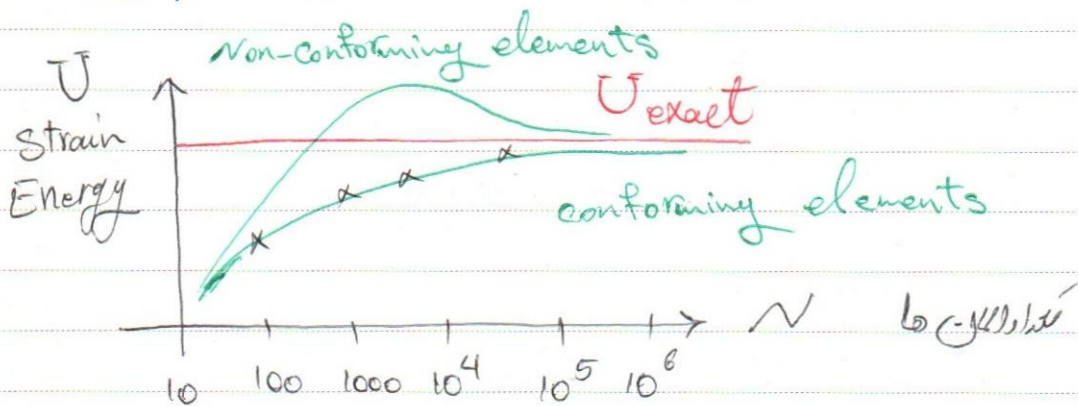 Non-conforming elements
U
Strain
Energy
U exact
conforming elements
N
تعداد المان ها
10 100 1000 10⁴ 10⁵ 10⁶